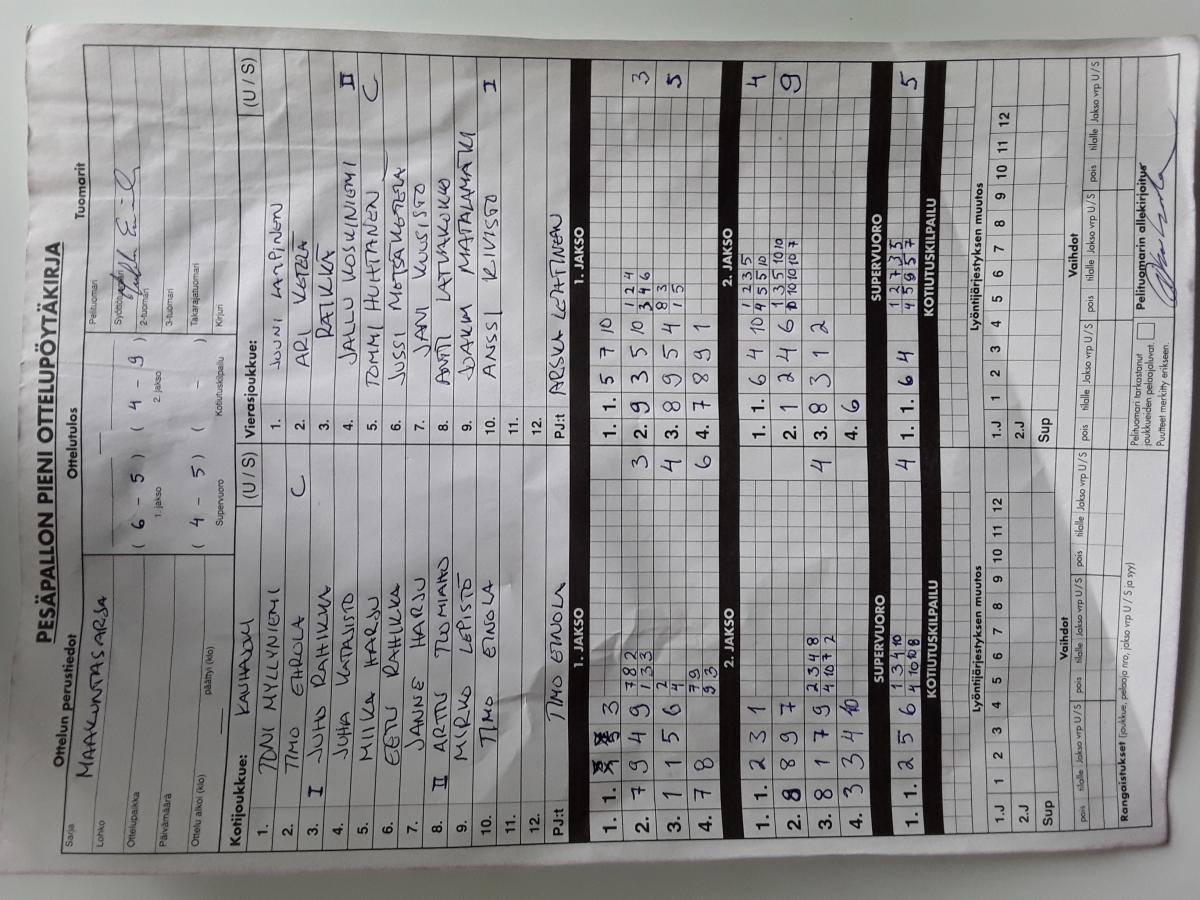 PESÄPALLON PIENI OTTELUPÖYTÄKIRJA
Ottelun perustiedot
Ottelutulos
Tuomarit
Sarja
MAAKUNTASARJA
Lohko
Ottelupaikka
Päivämäärä
Ottelu alkoi (klo)
päättyi (klo)
( 6 - 5 ) ( 4 - 9 )
1. jakso
2. jakso
( 4 - 5 ) ( - )
Supervuoro
Kotiutuskilpailu
Pelituomari
Syöttötuomari
2-tuomari
3-tuomari
Takarajatuomari
Kirjuri
Kotijoukkue: KAUHAJOKI (U / S)
1. TONI MYLLYNIEMI
2. TIMO EHROLA C
I 3. JUHO RAHIKKA
4. JUHA KATAJISTO
5. MIIKA HARJU
6. EETU RAHIKKA
7. JANNE HARJU
II 8. ARTTU TUOMIAHO
9. MIRKO LEPISTÖ
10. TIMO EINOLA
11.
12.
PJ:t TIMO EINOLA
Vierasjoukkue: (U / S)
1. JOUNI LAMPINEN
2. ARI KETELÄ
3. RATIKKA
4. JALLU KOSKINIEMI II
5. TOMMI HUHTANEN C
6. JUSSI METSÄKETELÄ
7. JANI KUUSISTO
8. ANTTI LATVAKOKKO
9. JOAKIM MATALAMÄKI
10. ANSSI KIVISTÖ I
11.
12.
PJ:t ARSKA LEHTINEN
1. JAKSO
1. 1. 3
2. 7 9 4 9 7 8 2 3
1 3 3
3. 1 1 5 6 2 4
4
4. 7 8 7 9 6
9 3
1. JAKSO
1. 1. 5 7 10
2. 9 3 5 10 1 2 4 3
3 4 6
3. 8 9 5 4 8 3 5
1 5
4. 7 8 9 1
2. JAKSO
1. 1. 2 3 1
2. 8 8 9 7
3. 8 1 7 9 2 3 4 8 4
4 10 7 2
4. 3 3 4 10
2. JAKSO
1. 1. 6 4 10 1 2 3 5 4
4 5 5 10
2. 1 2 4 6 1 3 5 10 10 9
10 10 10 10 7
3. 8 3 1 2
4. 6
SUPERVUORO
1. 1. 2 5 6 1 3 4 10 4
4 10 10 8
SUPERVUORO
1. 1. 6 4 1 2 7 3 5 5
4 5 9 5 7
KOTIUTUSKILPAILU
KOTIUTUSKILPAILU
Lyöntijärjestyksen muutos
1.J 1 2 3 4 5 6 7 8 9 10 11 12
2.J
Sup
Lyöntijärjestyksen muutos
1.J 1 2 3 4 5 6 7 8 9 10 11 12
2.J
Sup
Vaihdot
pois tilalle Jakso vrp U / S pois tilalle Jakso vrp U / S pois tilalle Jakso vrp U / S
Vaihdot
pois tilalle Jakso vrp U / S pois tilalle Jakso vrp U / S pois tilalle Jakso vrp U / S
Rangaistukset (joukkue, pelaaja nro, jakso vrp U / S ja syy)
Pelituomari tarkastanut
joukkueiden pelaajaluvat.
Puutteet merkitty erikseen.
Pelituomarin allekirjoitus